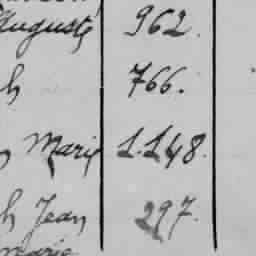 Auguste 962.
h 766.
Marie 1.148.
h Jean 297.
Marie